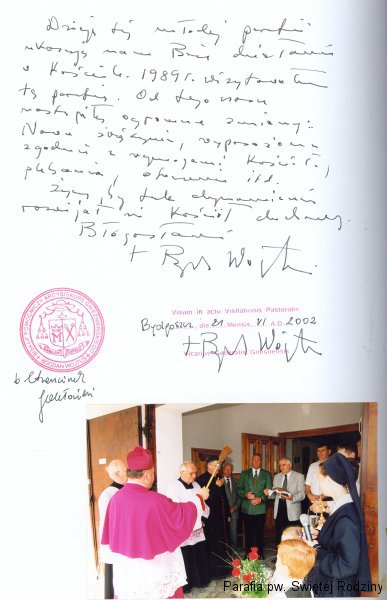 Dzieje tej młodej parafii
ukazują nam Boże działanie
w Kościele. 1989 r. wizytowałem
tę parafię. Od tego czasu
nastąpiły ogromne zmiany:
Nowa świątynia, wyposażona
zgodnie z wymogami Kościoła,
plebania, otoczenie itd.
Życzę by tak dynamicznie
rozwijał się Kościół duchowy.
Błogosławię
+ Bp B. Wojtuś
Visum in actu Visitationis Pastoralis
Bydgoszcz, die 21 Mensis, VI A.D. 2002
+ Bp B. Wojtuś
Vicarius Generalis Gnesnensis
Parafia pw. Świętej Rodziny